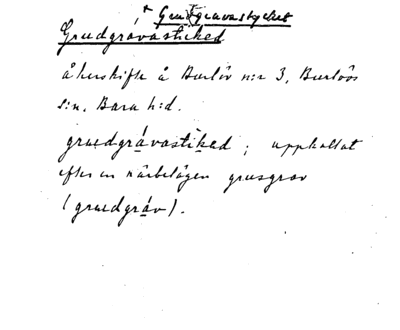 Grusgravastycket
Gruedgravasticked
åkerskifte å Burlöv n:r 3, Burlövs
s:n, Bara h:d.
gruedgrávastiked; uppkallat
efter en närbelägen grusgrav
(gruedgráv).